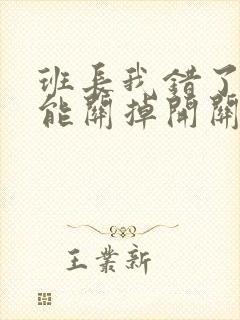 班长我错了
能關掉開關
王業新